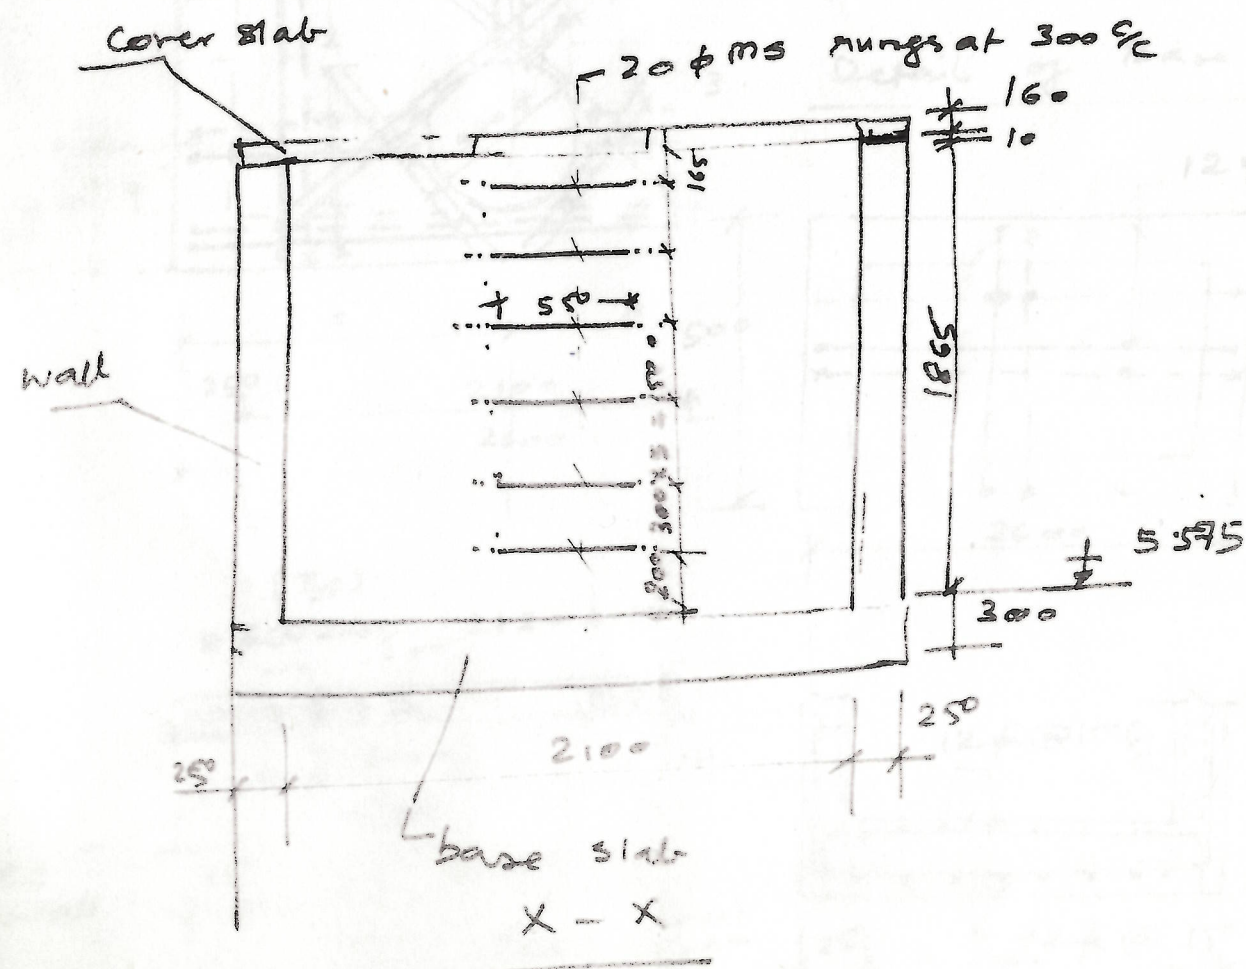 cover slab
20 ϕ ms rungs at 300 c/c
160
10
165
550
wall
1865
200 300x5 = 1500
5.575
300
250
2100
250
base slab
X - X